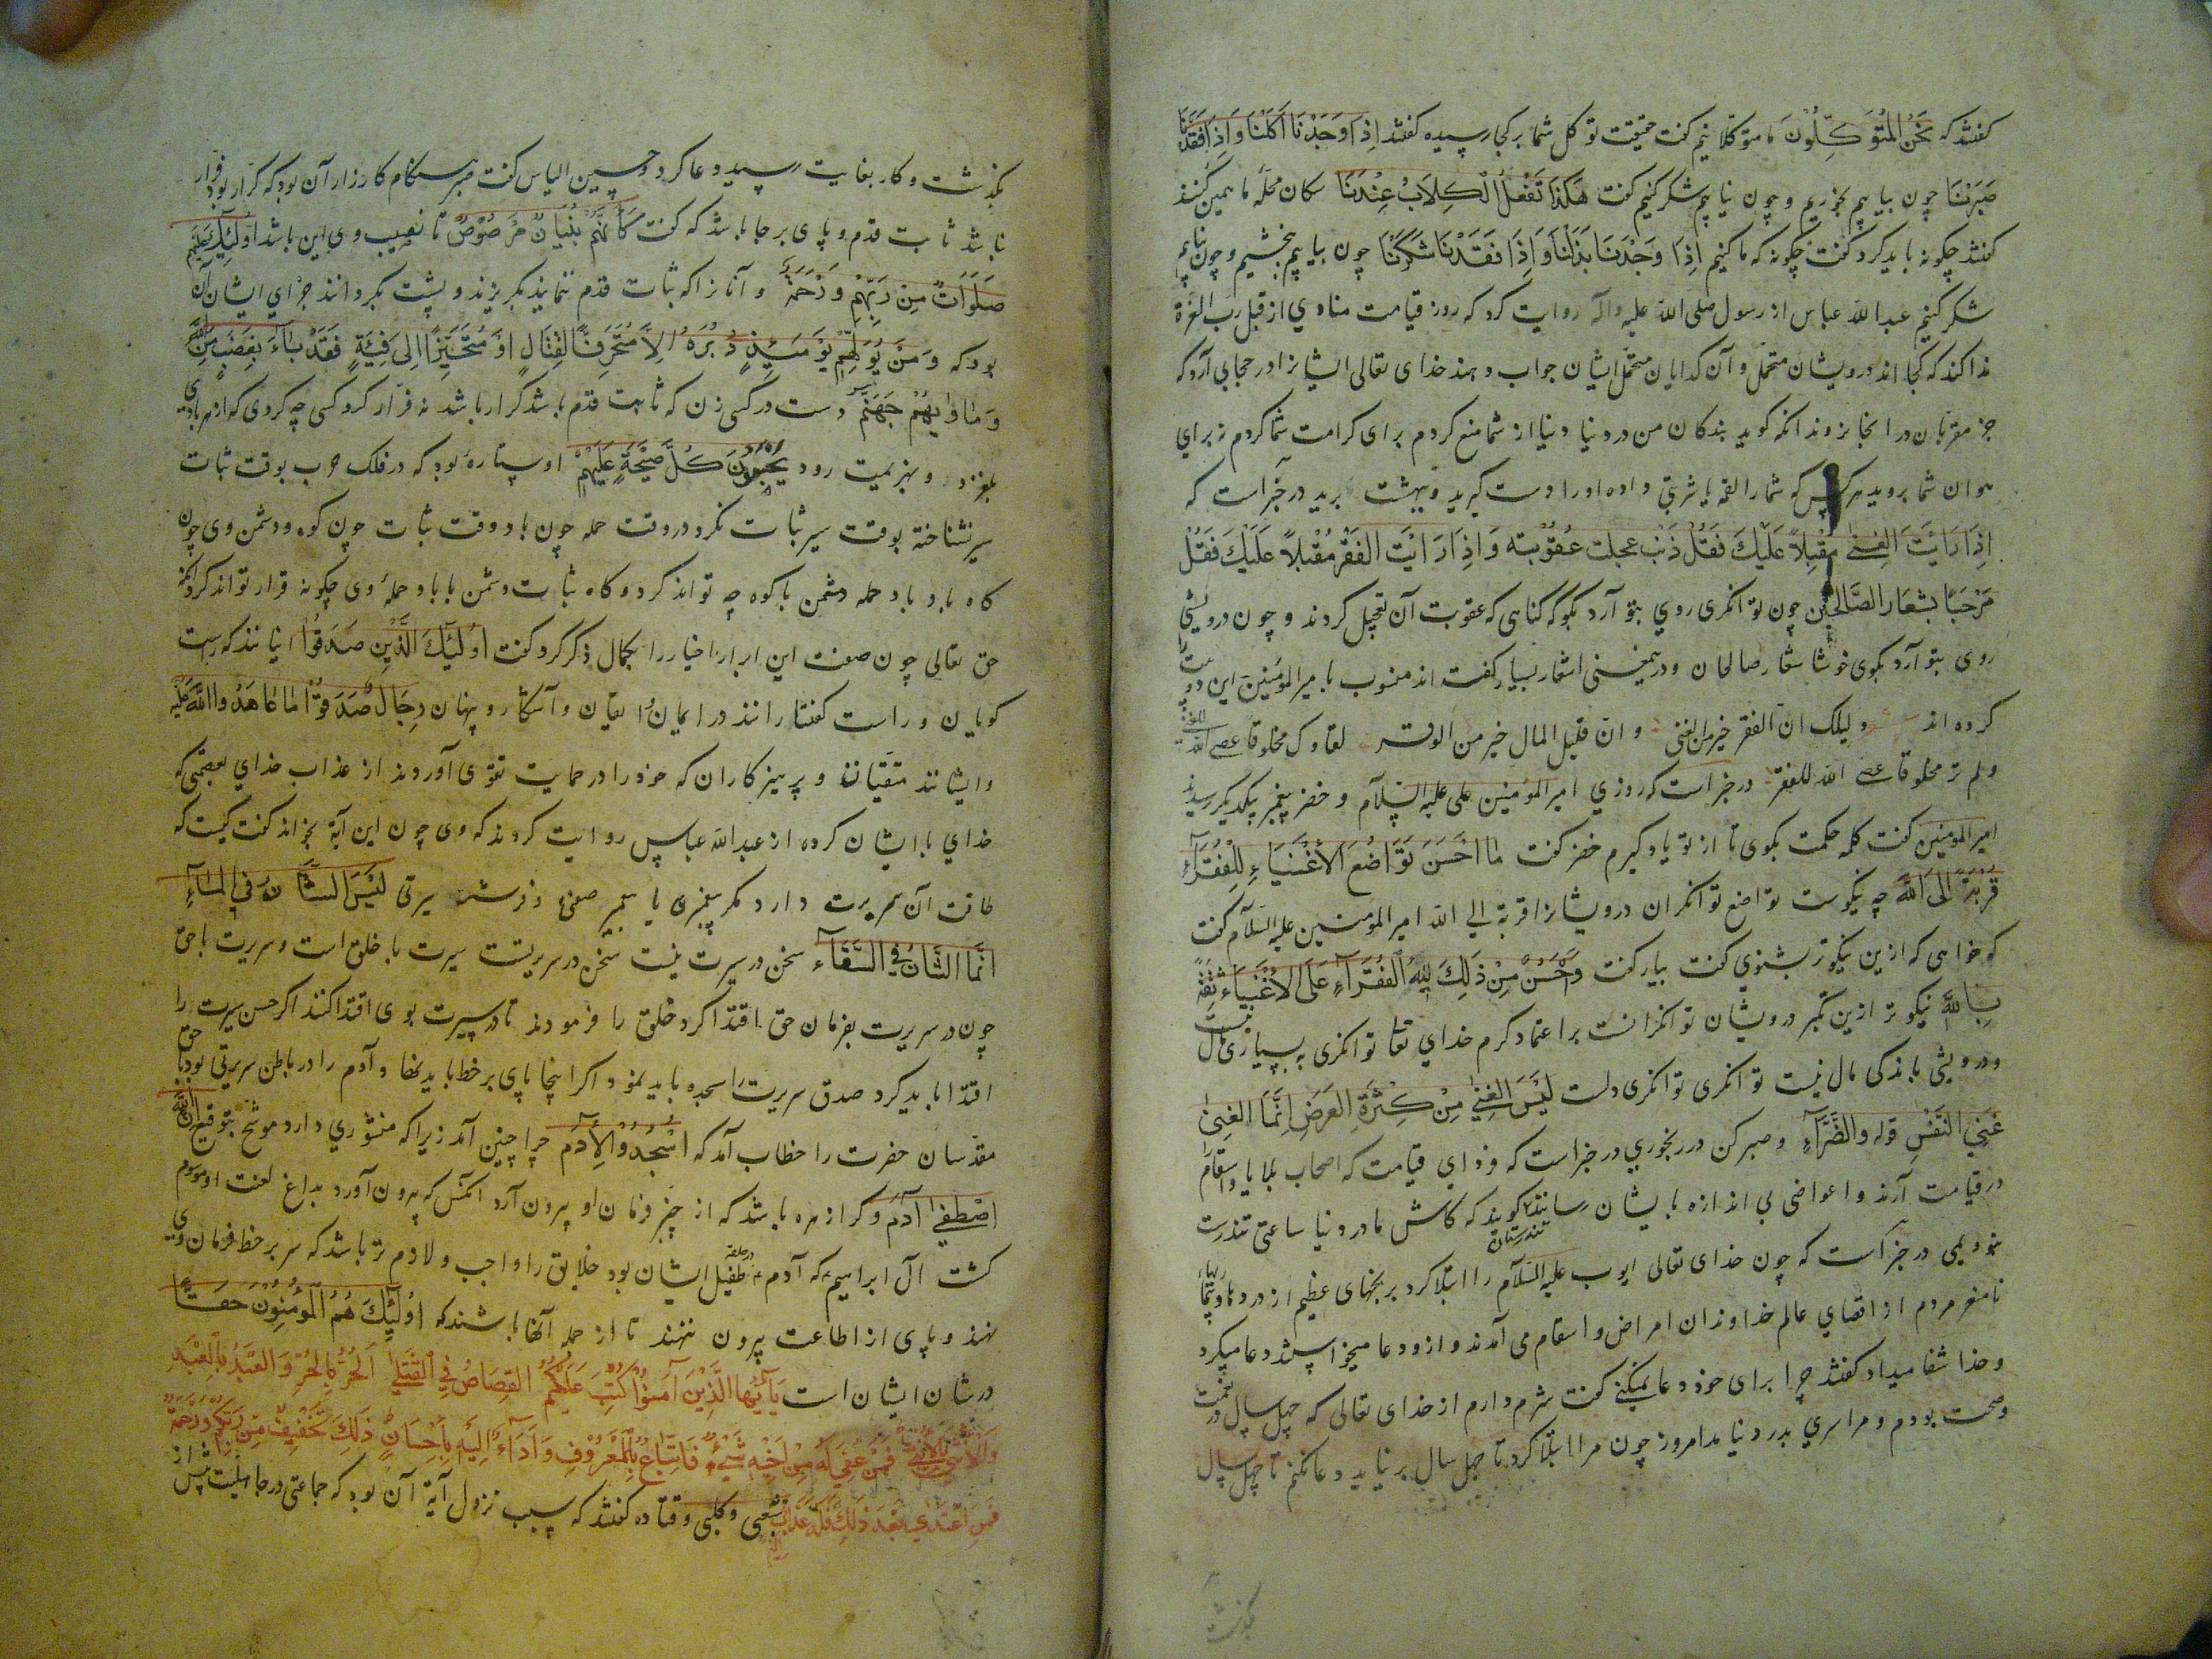 کفتند که نَحْنُ المُتَوَکِّلُونَ ما متوکلانیم کفت حقیقت توکل شما بر کجا رسیده کفتند اِذَا وَجَدْنَا اَکَلْنَا وَ اِذَا فَقَدْنَا
صَبَرْنَا چون بیابیم بخوریم و چون نیابیم شکر کنیم کفت هَکَذَا تَفْعَلُ الْکِلَابُ عِنْدَنَا سکان محلّه ما همین کنند
کفتند چکونه باید کرد کفت چکونه که ما کنیم اِذَا وَجَدْنَا بَذَلْنَا وَ اِذَا فَقَدْنَا شَکَرْنَا چون بیابیم بخشیم و چون نیابیم
شکر کنیم عبد الله عباس از رسول صلی الله علیه وآله روایت کرد که روز قیامت منادی از قبل رب العزة
ندا کند که کجا اند درویشان متحمّل و آن کدایان متحمّل ایشان جواب دهند خدای تعالی ایشانرا در حجابی آرد که
جز مقربان در انجا نروند انکه کوید بندکان من در دنیا دنیا از شما منع کردم برای کرامت شما کردم نه برای
هوان شما بروید هر کس که شما را لقمه یا شربتی داده او را دست کیرید و ببهشت برید در خبر است که
اِذَا رَاَیْتَ الغِنیٰ مُقْبِلاً عَلَیْکَ فَقُلْ ذَنْبٌ عجلت عُقُوْبته وَ اِذَا رَاَیْتَ الفَقْرَ مُقْبِلاً عَلَیْکَ فَقُلْ
مَرْحَبًا بِشِعَارِ الصَّالِحِیْنَ چون توانکری روی بتو آرد بکو که کناهی که عقوبت آن تعجیل کردند و چون درویشی
روی بتو آرد بکوی خوشا شعار صالحان و درین معنی اشعار بسیار کفته اند منسوب با میر المؤمنین این دو بیت را
کرده اند دلیلک انّ الفقر خیر من الغنی و انّ قلیل المال خیر من الوفر لقاوک مخلوقا عصی الله للغنی
و لم تر مخلوقا عصی الله للفقر در خبر است که روزی امیر المؤمنین علی علیه السّلام و خضر پیغمبر بیکدیکر رسیدند
امیر المومنین کفت کلمه حکمت بکوی تا از تو یاد کیرم خضر کفت مَا اَحْسَنَ تَوَاضُعَ الْاَغْنِیَاءِ لِلْفُقَرَآءِ
قُرْبَةً اِلَی اللهِ چه نیکوست تواضع توانکران درویشانرا قربة الی الله امیر المؤمنین علیه السّلام کفت
که خواهی که ازین نیکوتر بشنوی کفت بیار کفت وَ اَحْسَنُ مِنْ ذَلِکَ تِیْهُ الفُقَرَآءِ عَلَی الاَغْنِیَاءِ ثِقَةً
بِاللهِ نیکوتر ازین تکبر درویشان توانکرانست بر اعتماد کرم خدای تعا توانکری به بسیاری مال نیست
و درویشی باندکی مال نیست توانکری توانکری دلست لَیْسَ الغِنیٰ مِنْ کَثْرَةِ العَرَضِ اِنَّمَا الغِنیٰ
غِنَی النَّفْسِ قوله و الضَّرَّآءِ و صبر کن در رنجوری در خبر است که فردای قیامت که اصحاب بلایا و اسقام را
در قیامت آرند و اعواضی بی اندازه بایشان رسانند تندرستان کویند که کاش ما در دنیا ساعتی تندرست
نبودیمی در خبر است که چون خدای تعالی ایوب علیه السّلام را ابتلا کرد برنجهای عظیم از درد و بیماریها
تا منفر مردم از اقصای عالم خداوندان امراض و اسقام می آمدند و ازو دعا میخواستند و دعا میکرد
و خدا شفا میداد کفتند چرا برای خود دعا نمیکنی کفت شرم دارم از خدای تعالی که چهل سال در نعمت
و صحت بودم و مرا سری بدرد نیامد امروز چون مرا ابتلا کرد تا چهل سال بر نیاید دعا نکنم تا چهل سال
بگذشت
بگذشت و کار بغایت رسید دعا کرد و حسین الیاس کفت صبر هنکام کارزار آن بود که کرّار بود فرّار
نباشد ثابت قدم و پای بر جا باشد که کفت کَاَنَّهُمْ بُنْیَانٌ مَرْصُوْصٌ تا نصیب وی این باشد اُولٰئِکَ عَلَیْهِمْ
صَلَوَاتٌ مِنْ رَبِّهِمْ وَ رَحْمَةٌ و آنانرا که ثبات قدم ننمایند بکریزند و پشت بکردانند جزای ایشان آن
بود که وَ مَنْ یُوَلِّهِمْ یَوْمَئِذٍ دُبُرَهُ اِلاَّ مُتَحَرِّفًا لِقِتَالٍ اَوْ مُتَحَیِّزًا اِلٰی فِئَةٍ فَقَدْ بَآءَ بِغَضَبٍ مِنَ اللهِ
وَ مَاْوٰیهُمْ جَهَنَّمُ دست در کسی زن که ثابت قدم باشد کرار باشد نه فرّار کرد کسی چه کردی که از هر بادی
بلغزد و بهزیمت رود یَحْسَبُوْنَ کُلَّ صَیْحَةٍ عَلَیْهِمْ او ستاره بود که در فلک حرب بوقت ثبات
سیر نشناخته بوقت سیر ثبات نکرد در وقت حمله چون باد و وقت ثبات چون کوه و دشمن وی چون
کاه باد باد حمله دشمن با کوه چه تواند کرد و کاه ثبات دشمن با باد حملهٔ وی چکونه قرار تواند کرد آنکه
حق تعالی چون صفت این ابرار اخیار را بکمال ذکر کرد کفت اُولٰئِکَ الَّذِیْنَ صَدَقُوْا اینانند که راست
کویان و راست کفتارانند در ایمان و ایقان و آشکار و پنهان رِجَالٌ صَدَقُوْا مَا عَاهَدُوا اللهَ عَلَیْهِ
و ایشانند متقیان و پرهیزکاران که خود را در حمایت تقوی آوردند از عذاب خدای بعصمتی که
خدای با ایشان کرده از عبد الله عباس روایت کردند که وی چون این آیة بخواند کفت کیست که
طاقت آن سریرت دارد مکر پیغمبری یا پیغمبر صفتی و فرشته سیرتی لَیْسَ الشَّانُ فِی المَآءِ
اِنَّمَا الشَّانُ فِی السَّقَآءِ سخن در سیرت نیست سخن در سریرتست سیرت با خلق است و سریرت با حق
چون در سریرت بفرمان حق اقتدا کرد خلق را فرمودند تا در سیرت بوی اقتدا کنند اکر حسن سیرت را
اقتدا باید کرد صدق سریرت را سجده باید نمود اکر اینجا پای بر خطا باید نهاد و آدم را در باطن سریرتی بود با حق
مقدّسان حضرت را خطاب آمد که اُسْجُدُوْا لِآدَمَ چرا چنین آمد زیرا که منشوری دارد موشح بتوقیع اِنَّ اللهَ
اصْطَفیٰ آدَمَ و کر از مره باشد که از چنبر فرمان او بیرون آرد آنکس که بیرون آورد بداغ لعنت او موسوم
کشت آل ابراهیم که آدم طفیل ایشان بود خلایق را واجب و لازم تر باشد که سر بر خط فرمان وی
نهند و پای از اطاعت بیرون ننهند تا از جمله آنها باشند که اُولٰئِکَ هُمُ المُؤْمِنُوْنَ حَقًّا
در شان ایشان است یَآ اَیُّهَا الَّذِیْنَ آمَنُوْا کُتِبَ عَلَیْکُمُ القِصَاصُ فِی القَتْلٰی اَلْحُرُّ بِالْحُرِّ وَ العَبْدُ بِالْعَبْدِ
وَ الْاُنْثٰی بِالْاُنْثٰی فَمَنْ عُفِیَ لَهُ مِنْ اَخِیْهِ شَیْءٌ فَاتِّبَاعٌ بِالْمَعْرُوْفِ وَ اَدَآءٌ اِلَیْهِ بِاِحْسَانٍ ذٰلِکَ تَخْفِیْفٌ مِنْ رَبِّکُمْ وَ رَحْمَةٌ
فَمَنِ اعْتَدٰی بَعْدَ ذٰلِکَ فَلَهُ عَذَابٌ اَلِیْمٌ شعبی و کلبی و قتاده کفتند که سبب نزول آیة آن بود که جماعتی در جاهلیت پیش از